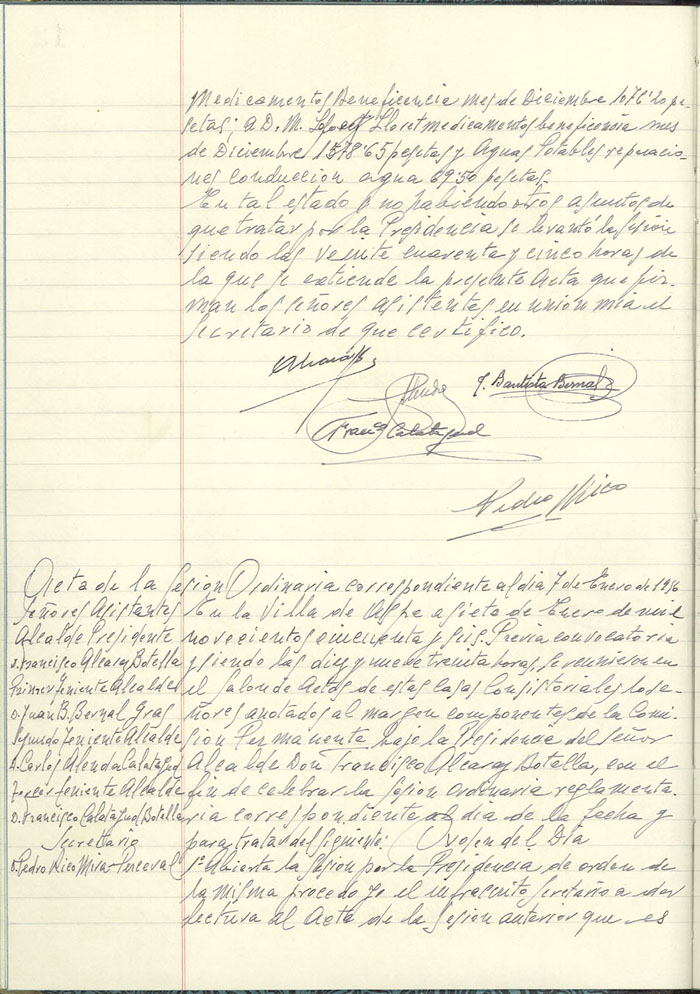 Medicamentos Beneficencia mes de Diciembre 1076'20 pe-
setas; a D. M. Lloret medicamentos beneficencia mes
de Diciembre 1578'65 pesetas y Aguas Potables reparacio-
nes conduccion agua 69'50 pesetas.
En tal estado y no habiendo otros asuntos de
que tratar por la Presidencia se levantó la sesión
siendo las veinte cuarenta y cinco horas de
la que se extiende la presente Acta que fir-
man los señores asistentes en unión mia el
Secretario de que certifico.
J. Bautista Bernal
Franco Calatayud
Pedro Mico
Acta de la Sesion Ordinaria correspondiente al dia 7 de Enero de 1956
Señores Asistentes
Alcalde Presidente
D. Francisco Alcaraz Botella
Primer Teniente Alcalde
D. Juan B. Bernal Gras
Segundo Teniente Alcalde
D. Carlos Alenda Calatayud
Tercer Teniente Alcalde
D. Francisco Calatayud Botella
Secretario
D. Pedro Mico Mira-Perceval
En la Villa de Aspe a siete de Enero de mil
novecientos cincuenta y seis. Previa convocatoria
y siendo las diez y nueve treinta horas, se reunieron en
el Salon de Actos de estas Casas Consistoriales lo se-
ñores anotados al margen componentes de la Comi-
sion Permanente bajo la Presidencia del señor
Alcalde Don Francisco Alcaraz Botella, con el
fin de celebrar la sesion ordinaria reglamenta-
ria correspondiente al dia de la fecha y
para tratar del siguiente: Orden del Dia
1º Abierta la Sesion por la Presidencia de orden de
la misma procedo yo el infrascrito Secretario a dar
lectura al Acta de la Sesion anterior que es